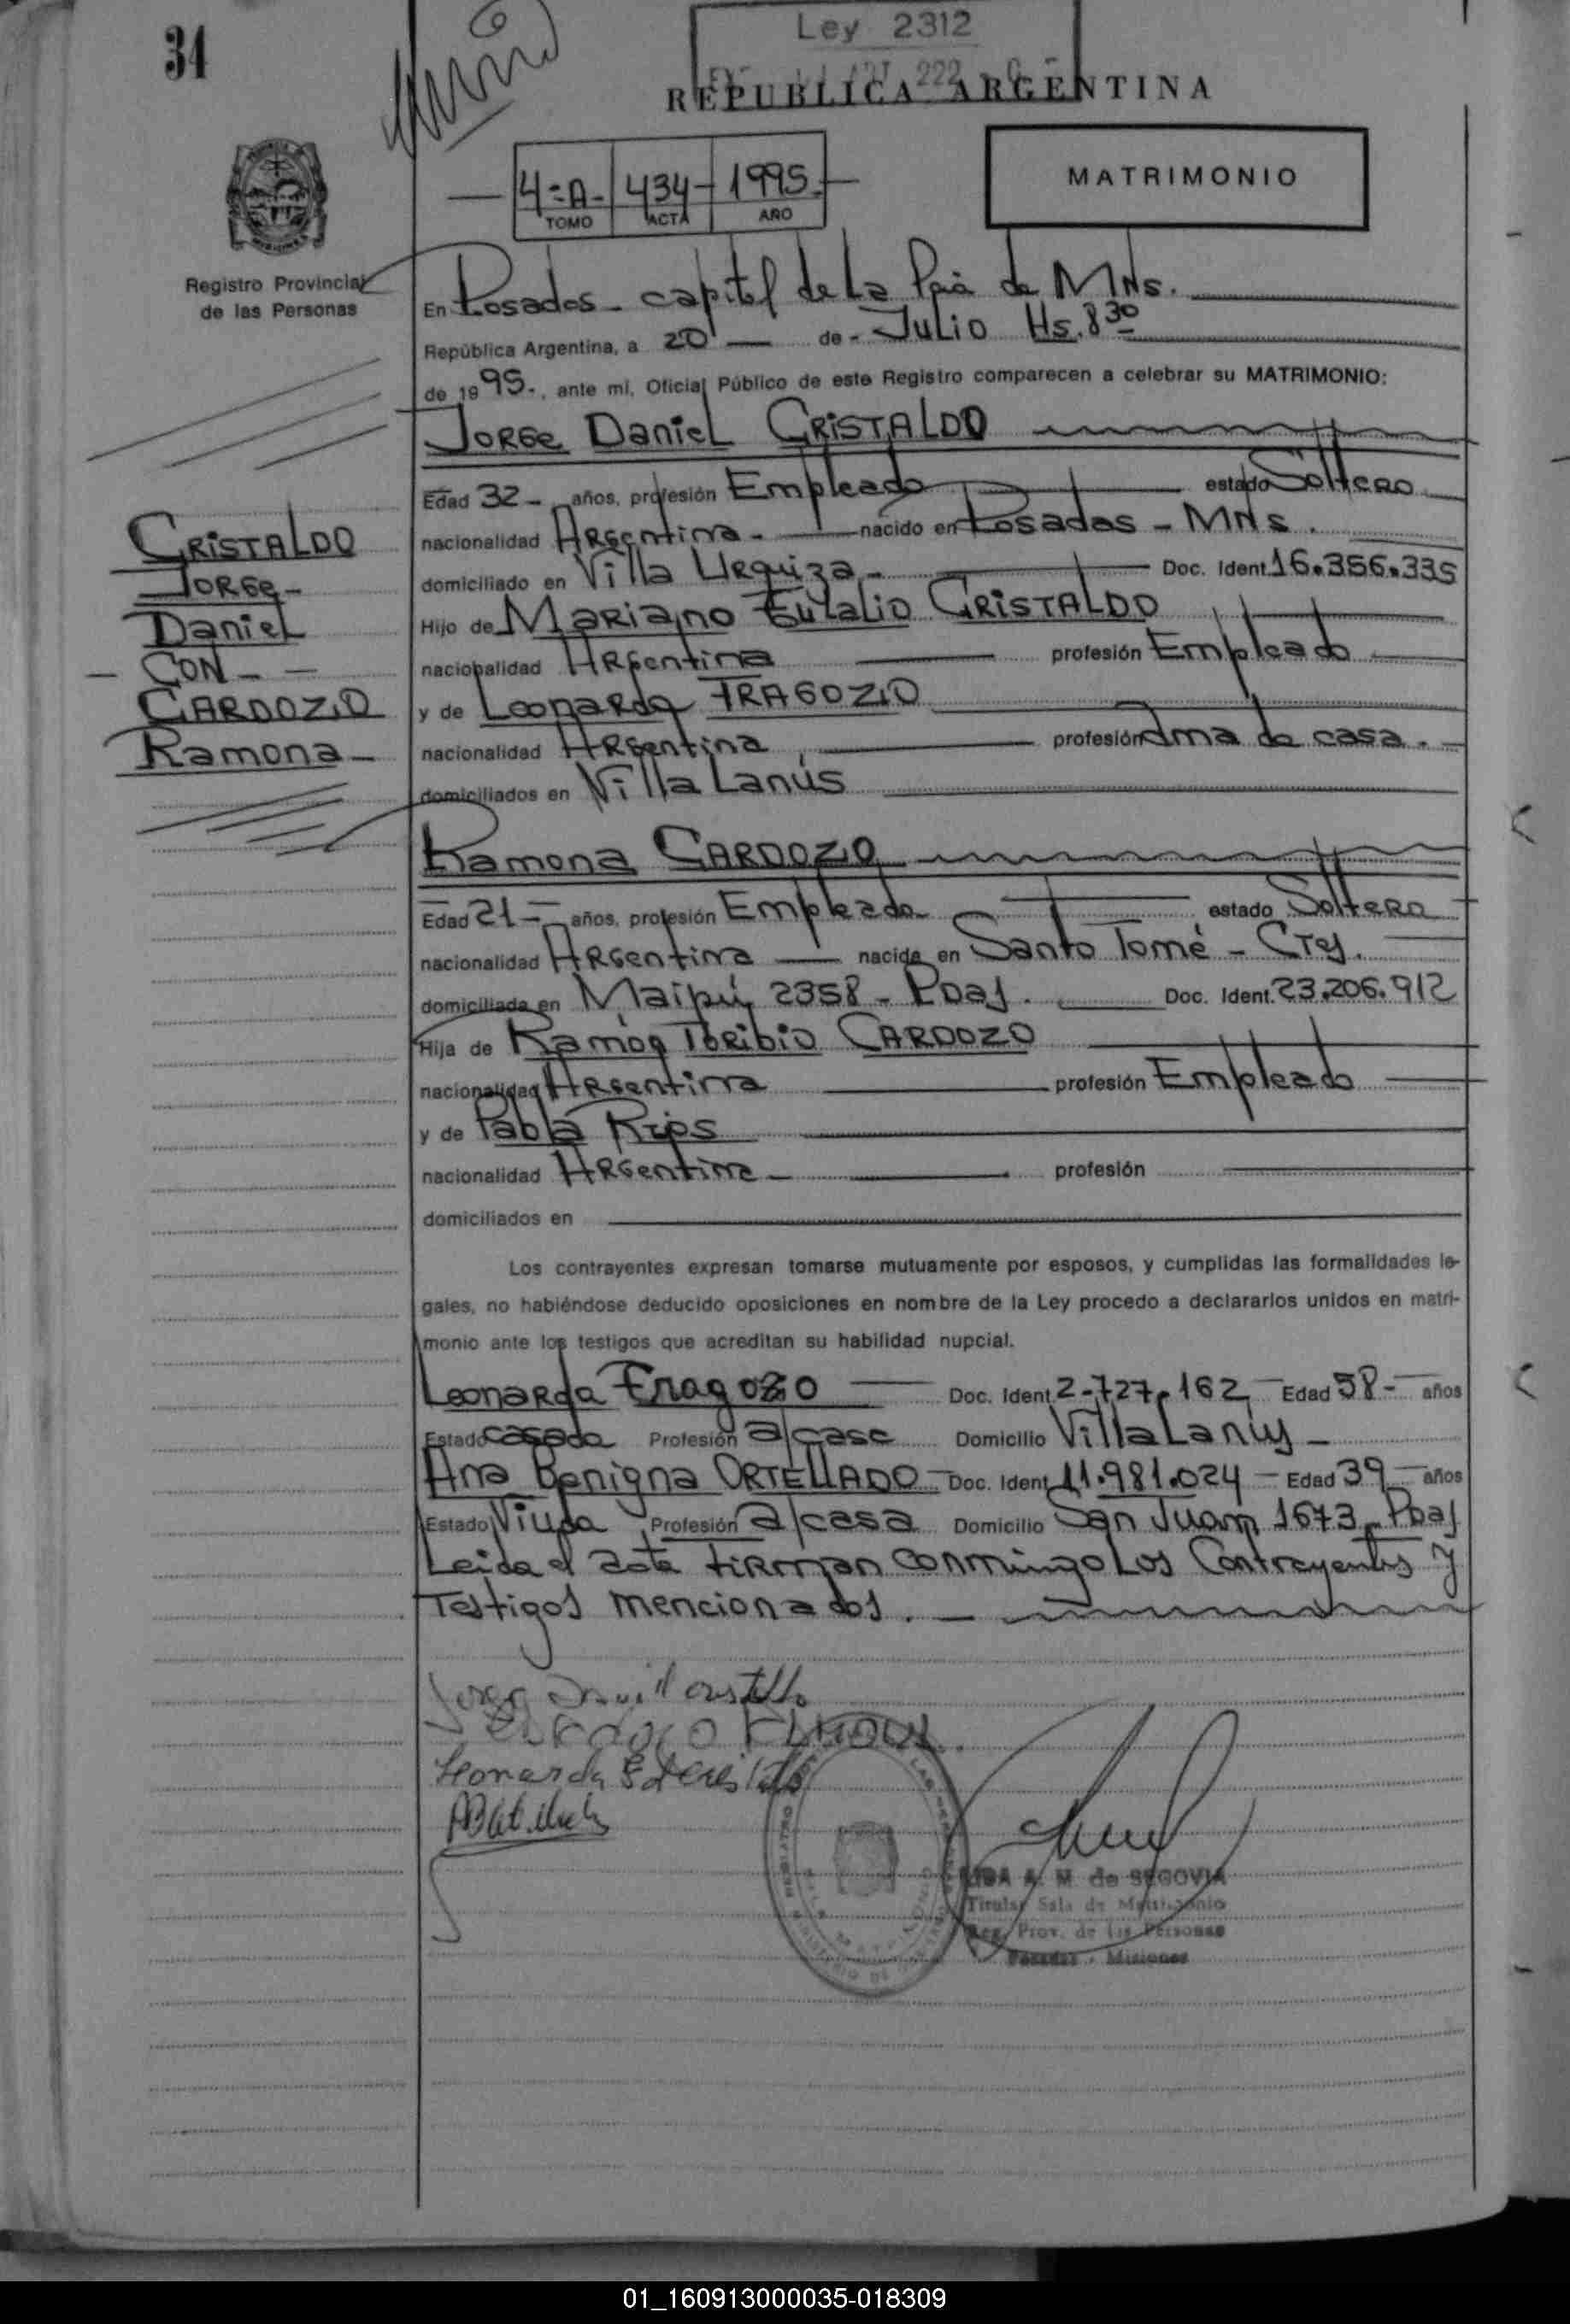 34
Ley 2312
REPUBLICA ARGENTINA
4=A- 434- 1995.
TOMO ACTA AÑO
MATRIMONIO
Registro Provincial
de las Personas
En Posadas - capital de La Pcia de MNs.
República Argentina, a 20 de - Julio Hs. 8 30
de 1995., ante mí, Oficial Público de este Registro comparecen a celebrar su MATRIMONIO:
Jorge Daniel CRISTALDO
Edad 32 - años, profesión Empleado estado Soltero
nacionalidad Argentina - nacido en Posadas - MNs.
domiciliado en Villa Urquiza - Doc. Ident. 16.356.335
Hijo de Mariano Eulalio CRISTALDO
nacionalidad Argentina profesión Empleado
y de Leonarda FRAGOZO
nacionalidad Argentina profesión Ama de casa.
domiciliados en Villa Lanús
CRISTALDO
Jorge -
Daniel
- CON -
CARDOZO
Ramona -
Ramona CARDOZO
Edad 21 - años, profesión Empleada estado Soltera
nacionalidad Argentina nacida en Santo Tomé - Ctes.
domiciliada en Maipú 2358 - Pdas. Doc. Ident. 23.206.912
Hija de Ramón Toribio CARDOZO
nacionalidad Argentina profesión Empleado
y de Pabla Rios
nacionalidad Argentina profesión
domiciliados en
Los contrayentes expresan tomarse mutuamente por esposos, y cumplidas las formalidades le-
gales, no habiéndose deducido oposiciones en nombre de la Ley procedo a declararlos unidos en matri-
monio ante los testigos que acreditan su habilidad nupcial.
Leonarda Fragozo Doc. Ident. 2.727.162 Edad 58 - años
Estado casada Profesión a/casa Domicilio Villa Lanús -
Ana Benigna ORTELLADO - Doc. Ident. 11.981.024 - Edad 39 - años
Estado Viuda Profesión a/casa Domicilio San Juan 1673 - Pdas
Leida el acta firman conmingo Los Contrayentes y
Testigos mencionados. -
Leonarda F de Cristaldo
A. M. de SEGOVIA
Titular Sala de Matrimonio
Reg. Prov. de las Personas
Posadas - Misiones
01_160913000035-018309